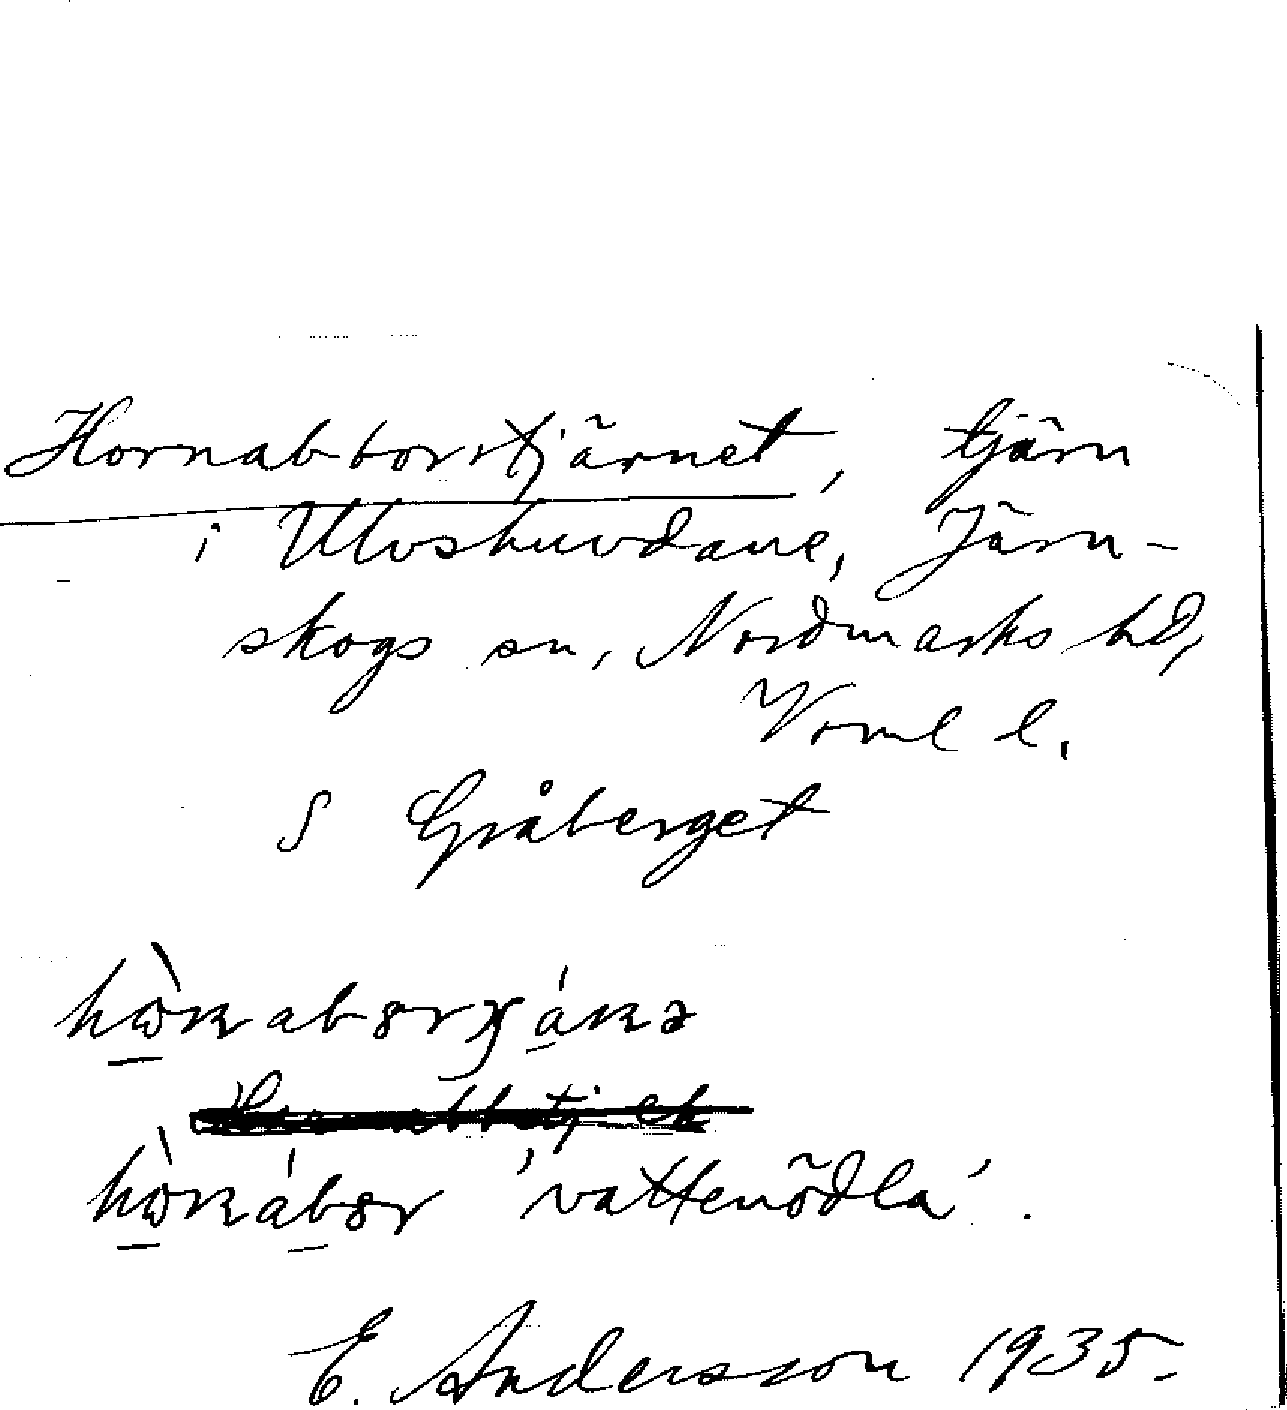 Hornabborrtjärnet, tjärn
i Ulvshuvdane, Järn-
skogs sn, Nordmarks hd,
Värml l.
S Gråberget
'vattenödla'.
E. Andersson 1935.